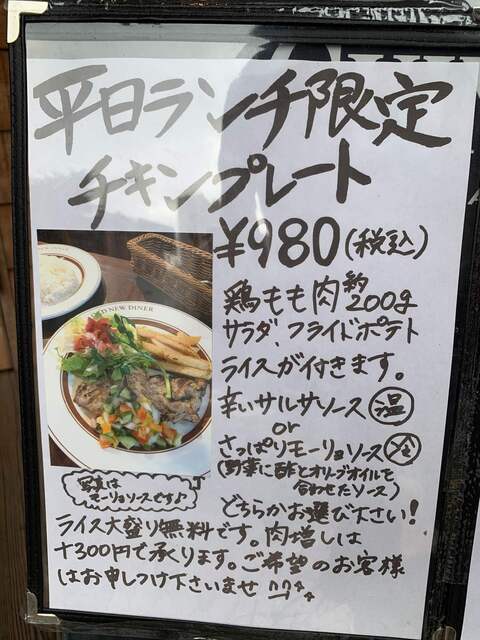 平日ランチ限定
チキンプレート
¥980(税込)
鶏もも肉 約200g
サラダ、フライドポテト
ライスが付きます。
辛いサルサソース 温
or
さっぱりモーリョソース 冷
(野菜に酢とオリーブオイルを
合わせたソース)
どちらかお選び下さい!
写真は
モーリョソースです♪
ライス大盛り無料です。肉増しは
+300円で承ります。ご希望のお客様
はお申しつけ下さいませ
NEW DINER